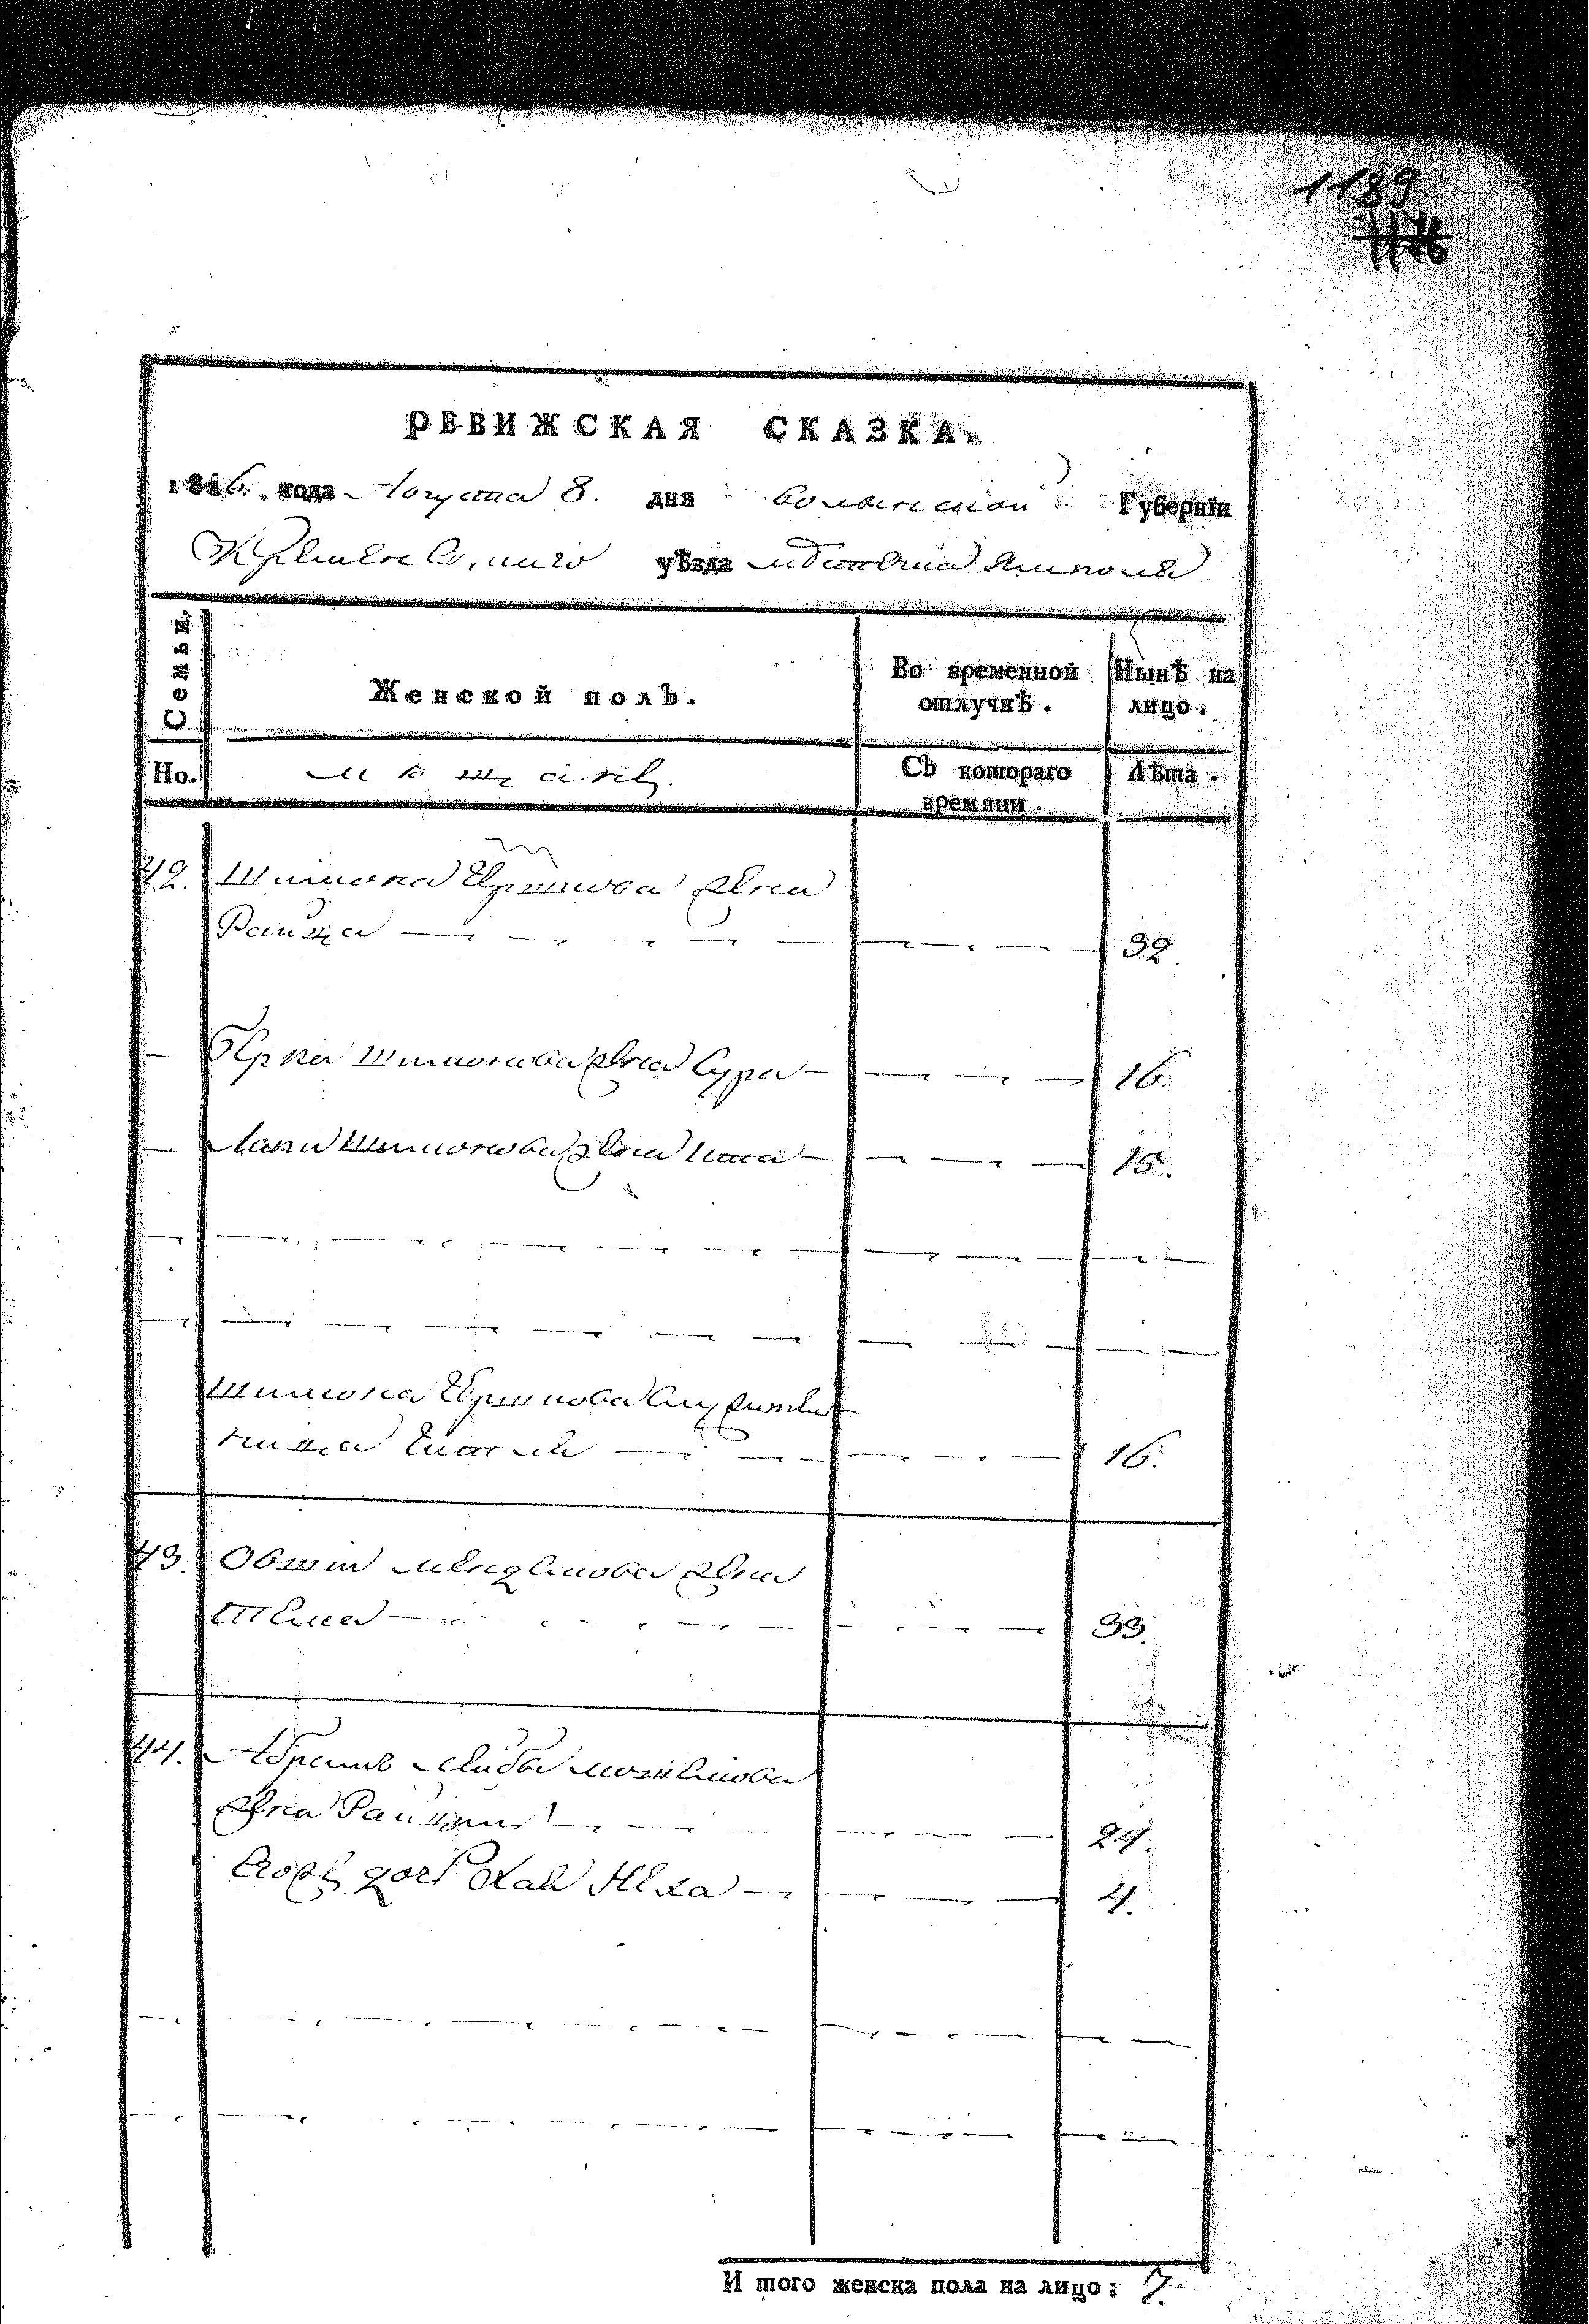 1189
1176
РЕВИЖСКАЯ СКАЗКА.
1816 года Августа 8. дня волынской Губерніи
Кременецкаго уѣзда мѣстечка Ямполя
Семьи.
Женской полъ.
Во временной отлучкѣ.
Нынѣ на лицо.
Но.
мѣщанъ.
Съ котораго времяни.
Лѣта.
42. Шимона Гершкова жена
Райца 32
Берка Шимонова жена Сура 16.
Шимонова жена 15.
Шимона Гершкова служитель
ница 16.
43. Овшія Менделіова жена
Шеина 33.
44. Абрамъ Лейба Мошкова
жена 24.
Ихъ дочь Хая Неха 4.
И того женска пола на лицо: 7.